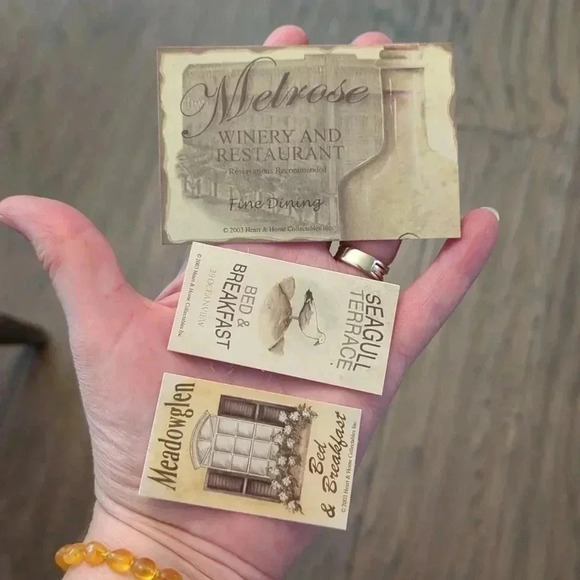 The Melrose
WINERY AND
RESTAURANT
Reservations Recommended
Fine Dining
© 2003 Heart & Home Collectables Inc.
SEAGULL
TERRACE
BED &
BREAKFAST
39 OCEANVIEW
© 2003 Heart & Home Collectables Inc
Meadowglen
Bed
& Breakfast
© 2003 Heart & Home Collectables Inc